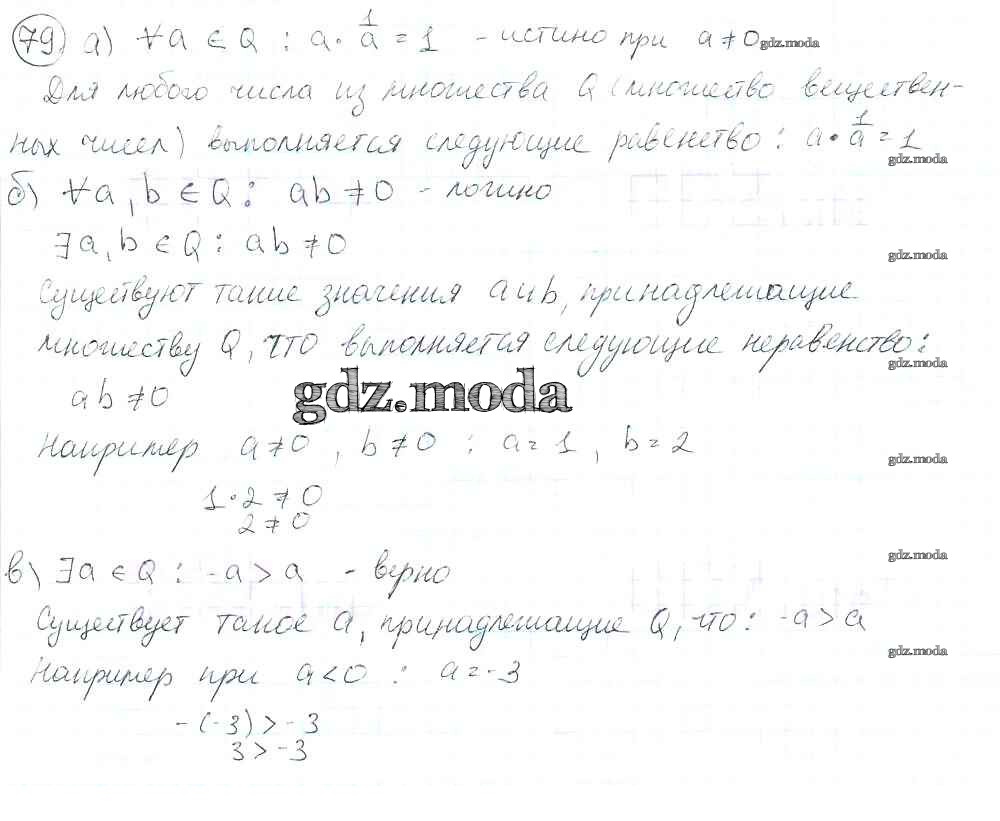 79) а) ∀a ∈ Q : a · 1/a = 1 - истино при a ≠ 0 gdz.moda
Для любого числа из множества Q (множество веществен-
ных чисел) выполняется следующие равенство : a · 1/a = 1
gdz.moda
б) ∀a, b ∈ Q : ab ≠ 0 - логино
∃a, b ∈ Q : ab ≠ 0
gdz.moda
Существуют такие значения a и b, принадлежащие
множеству Q, что выполняется следующие неравенство :
gdz.moda
ab ≠ 0
gdz.moda
Например a ≠ 0 , b ≠ 0 : a = 1 , b = 2
gdz.moda
1 · 2 ≠ 0
2 ≠ 0
gdz.moda
в) ∃a ∈ Q : -a > a - верно
Существует такое a, принадлежащие Q, что : -a > a
gdz.moda
Например при a < 0 : a = -3
-(-3) > -3
3 > -3